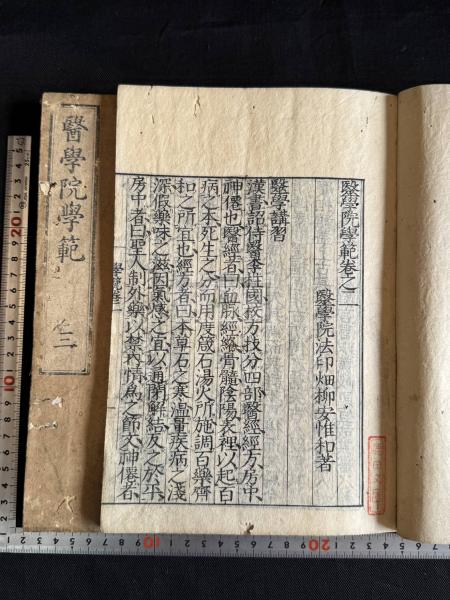 醫學院學範卷之一
醫學院法印畑柳安惟和著
醫學講習
漢書詔侍醫李柱國校方技分四部醫經經方房中
神僊也醫經者曰血脈經絡骨髓陰陽表裡以起百
病之本死生之分而用度箴石湯火所施調百藥齊
和之所宜也經方者曰本草石之寒温量疾病之淺
深假藥味之滋因氣感之宜以通閉解結反之於平
房中者曰聖人制外樂以禁内情為之節文神僊者
醫學院學範